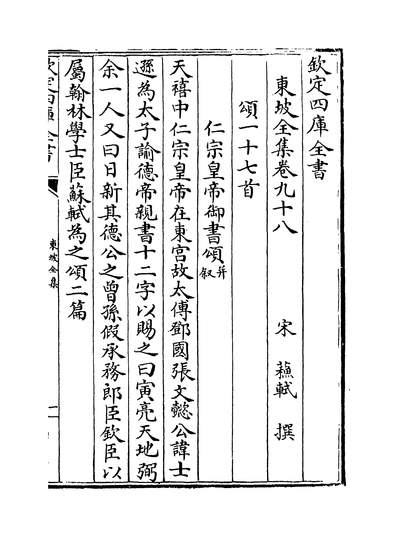 欽定四庫全書
東坡全集卷九十八
宋 蘓軾 撰
頌一十七首
仁宗皇帝御書頌并叙
天禧中仁宗皇帝在東宫故太傅鄧國張文懿公諱士
遜為太子諭德帝親書十二字以賜之曰寅亮天地弼
余一人又曰日新其德公之曽孫假承務郎臣欽臣以
屬翰林學士臣蘇軾為之頌二篇
欽定四庫全書
東坡全集
一